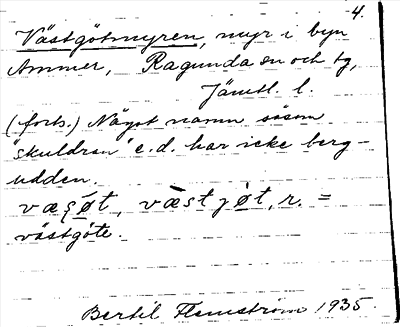 4.
Västgötmyren, myr i byn
Ammer, Ragunda sn och tg,
Jämtl. l.
(forts.) Något namn såsom
"skuldran" e.d. har icke berg-
udden.
væʂǿt, væstjǿt, r. =
västgöte.
Bertil Flemström 1935.